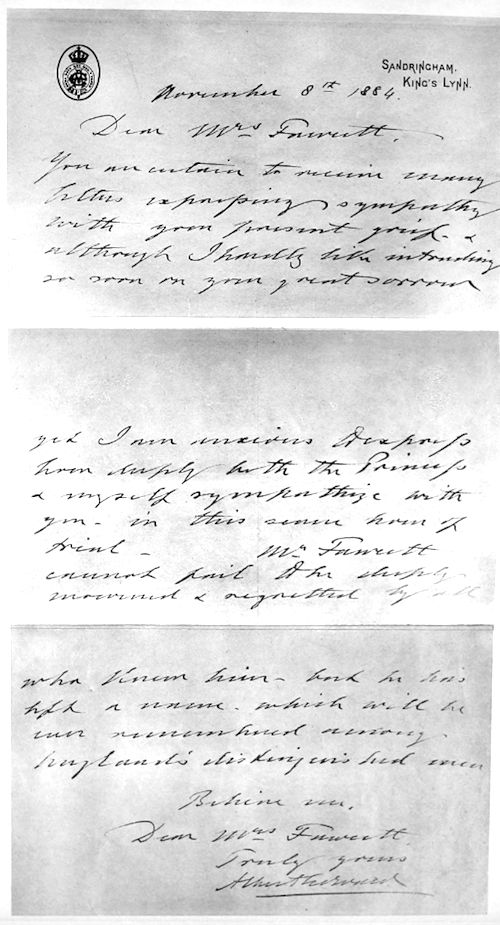 SANDRINGHAM,
KING'S LYNN.
November 8th 1884.
Dear Mrs Fawcett.
You are certain to receive many
letters expressing sympathy
with your present grief &
although I hardly like intruding
so soon on your great sorrow
yet I am anxious to express
how deeply both the Princess
& myself sympathize with
you - in this severe hour of
trial - Mr Fawcett
cannot fail to be deeply
mourned & regretted by all
who knew him - but he has
left a name - which will be
ever remembered among
England's distinguished men
Believe me,
Dear Mrs Fawcett
Truly yours
Albert Edward